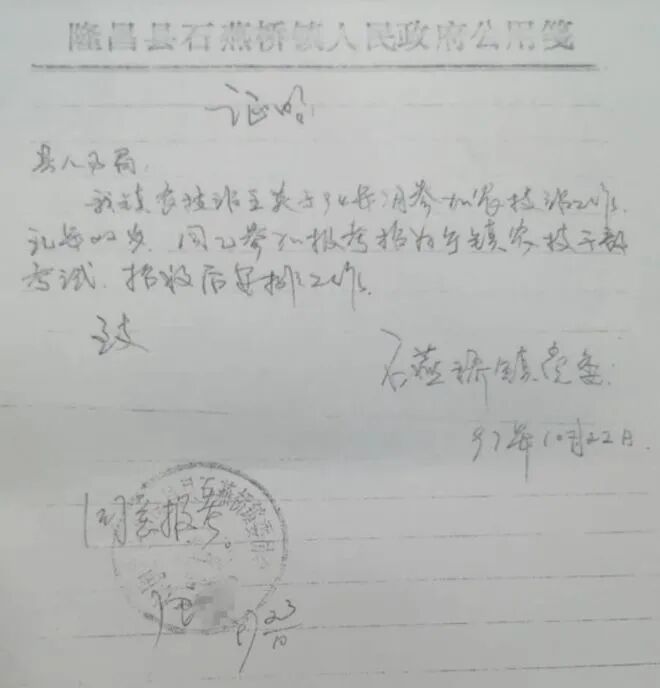 隆昌县石燕桥镇人民政府公用笺
证明
县人事局:
我镇农技站王英于94年7月参加农技站工作,
现年22岁,同意参加报考招为乡镇农技干部
考试,招收后安排工作。
致
石燕桥镇党委
97年10月22日
同意报考。
石燕桥镇委员会
97 23/10